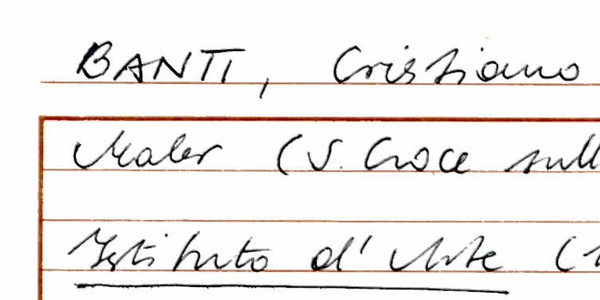 BANTI, Cristiano
Maler (S. Croce sull
Istituto d'Arte (1